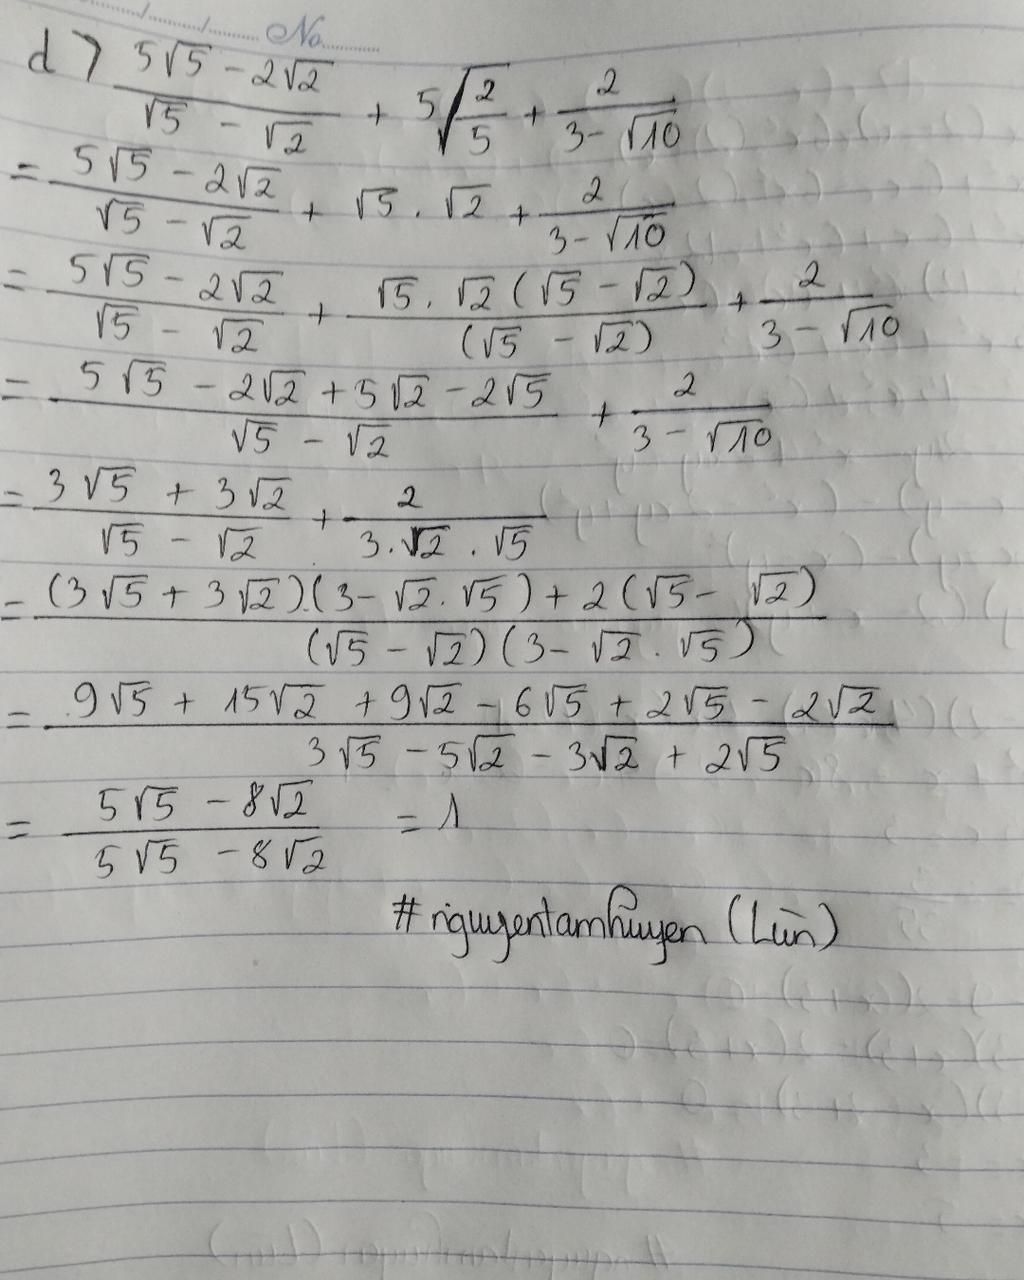 No
d) \frac{5\sqrt{5} - 2\sqrt{2}}{\sqrt{5} - \sqrt{2}} + 5\sqrt{\frac{2}{5}} + \frac{2}{3 - \sqrt{10}}
= \frac{5\sqrt{5} - 2\sqrt{2}}{\sqrt{5} - \sqrt{2}} + \sqrt{5} . \sqrt{2} + \frac{2}{3 - \sqrt{10}}
= \frac{5\sqrt{5} - 2\sqrt{2}}{\sqrt{5} - \sqrt{2}} + \frac{\sqrt{5} . \sqrt{2} (\sqrt{5} - \sqrt{2})}{(\sqrt{5} - \sqrt{2})} + \frac{2}{3 - \sqrt{10}}
= \frac{5\sqrt{5} - 2\sqrt{2} + 5\sqrt{2} - 2\sqrt{5}}{\sqrt{5} - \sqrt{2}} + \frac{2}{3 - \sqrt{10}}
= \frac{3\sqrt{5} + 3\sqrt{2}}{\sqrt{5} - \sqrt{2}} + \frac{2}{3 . \sqrt{2} . \sqrt{5}}
= \frac{(3\sqrt{5} + 3\sqrt{2}).(3 - \sqrt{2} . \sqrt{5}) + 2(\sqrt{5} - \sqrt{2})}{(\sqrt{5} - \sqrt{2})(3 - \sqrt{2} . \sqrt{5})}
= \frac{9\sqrt{5} + 15\sqrt{2} + 9\sqrt{2} - 6\sqrt{5} + 2\sqrt{5} - 2\sqrt{2}}{3\sqrt{5} - 5\sqrt{2} - 3\sqrt{2} + 2\sqrt{5}}
= \frac{5\sqrt{5} - 8\sqrt{2}}{5\sqrt{5} - 8\sqrt{2}} = 1
#nguyentamhuyen (Lùn)